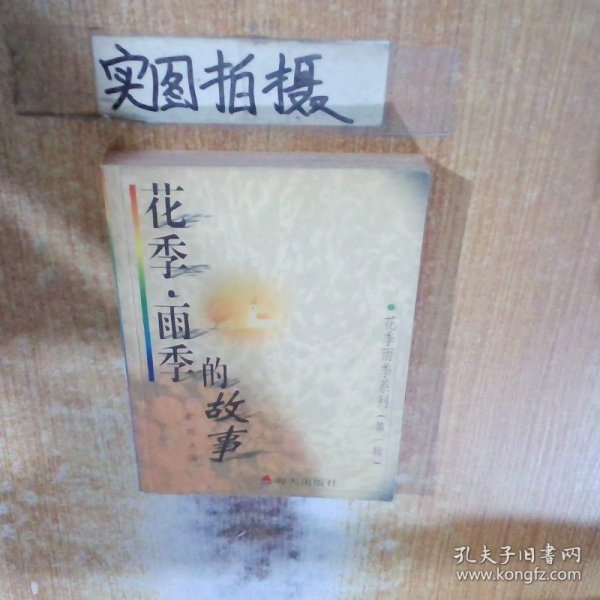 实图拍摄
花季·雨季
的故事
花季雨季系列（第一辑）
海天出版社
孔夫子旧书网
www.kongfz.com